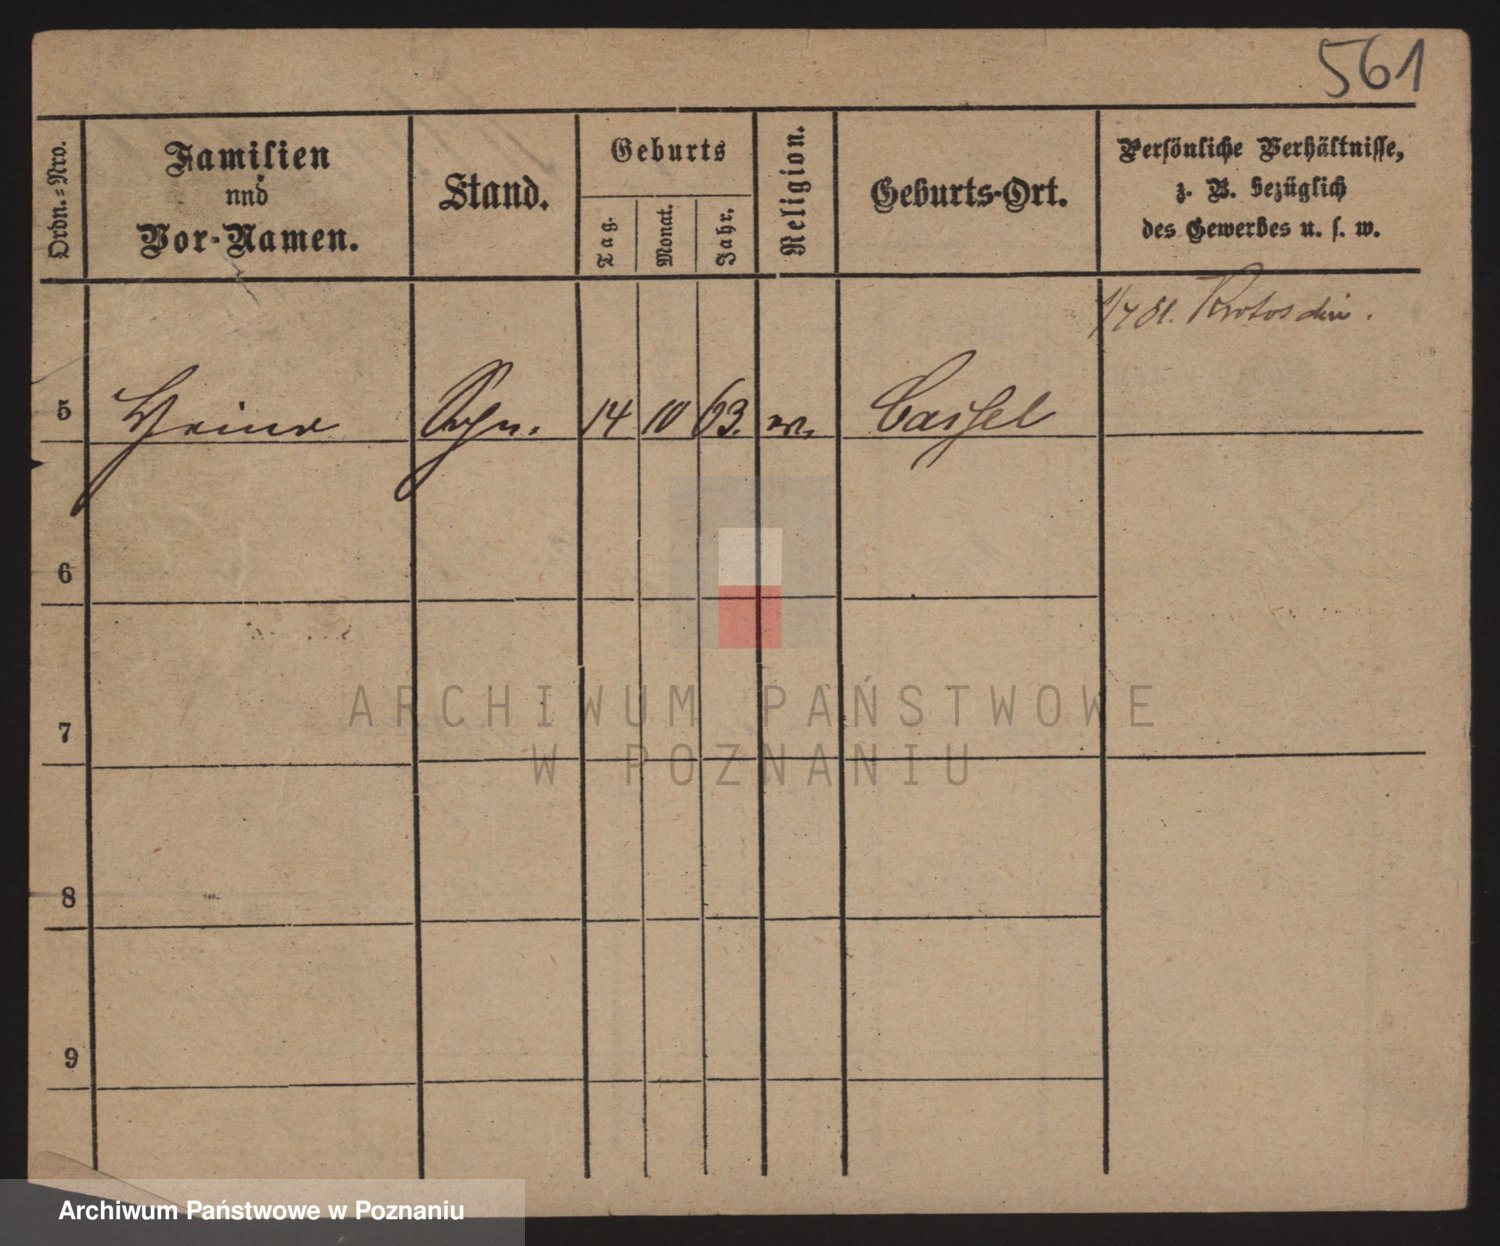 561
Ordn.-Nro.
Familien
nnd
Vor-Namen.
Stand.
Geburts
Tag.
Monat.
Jahr.
Religion.
Geburts-Ort.
Persönliche Verhältnisse,
z. B. bezüglich
des Gewerbes u. s. w.
1/7 81. Krotoschin.
5 14 10 63. Cassel
6
7
8
9
ARCHIWUM PAŃSTWOWE
W POZNANIU
Archiwum Państwowe w Poznaniu